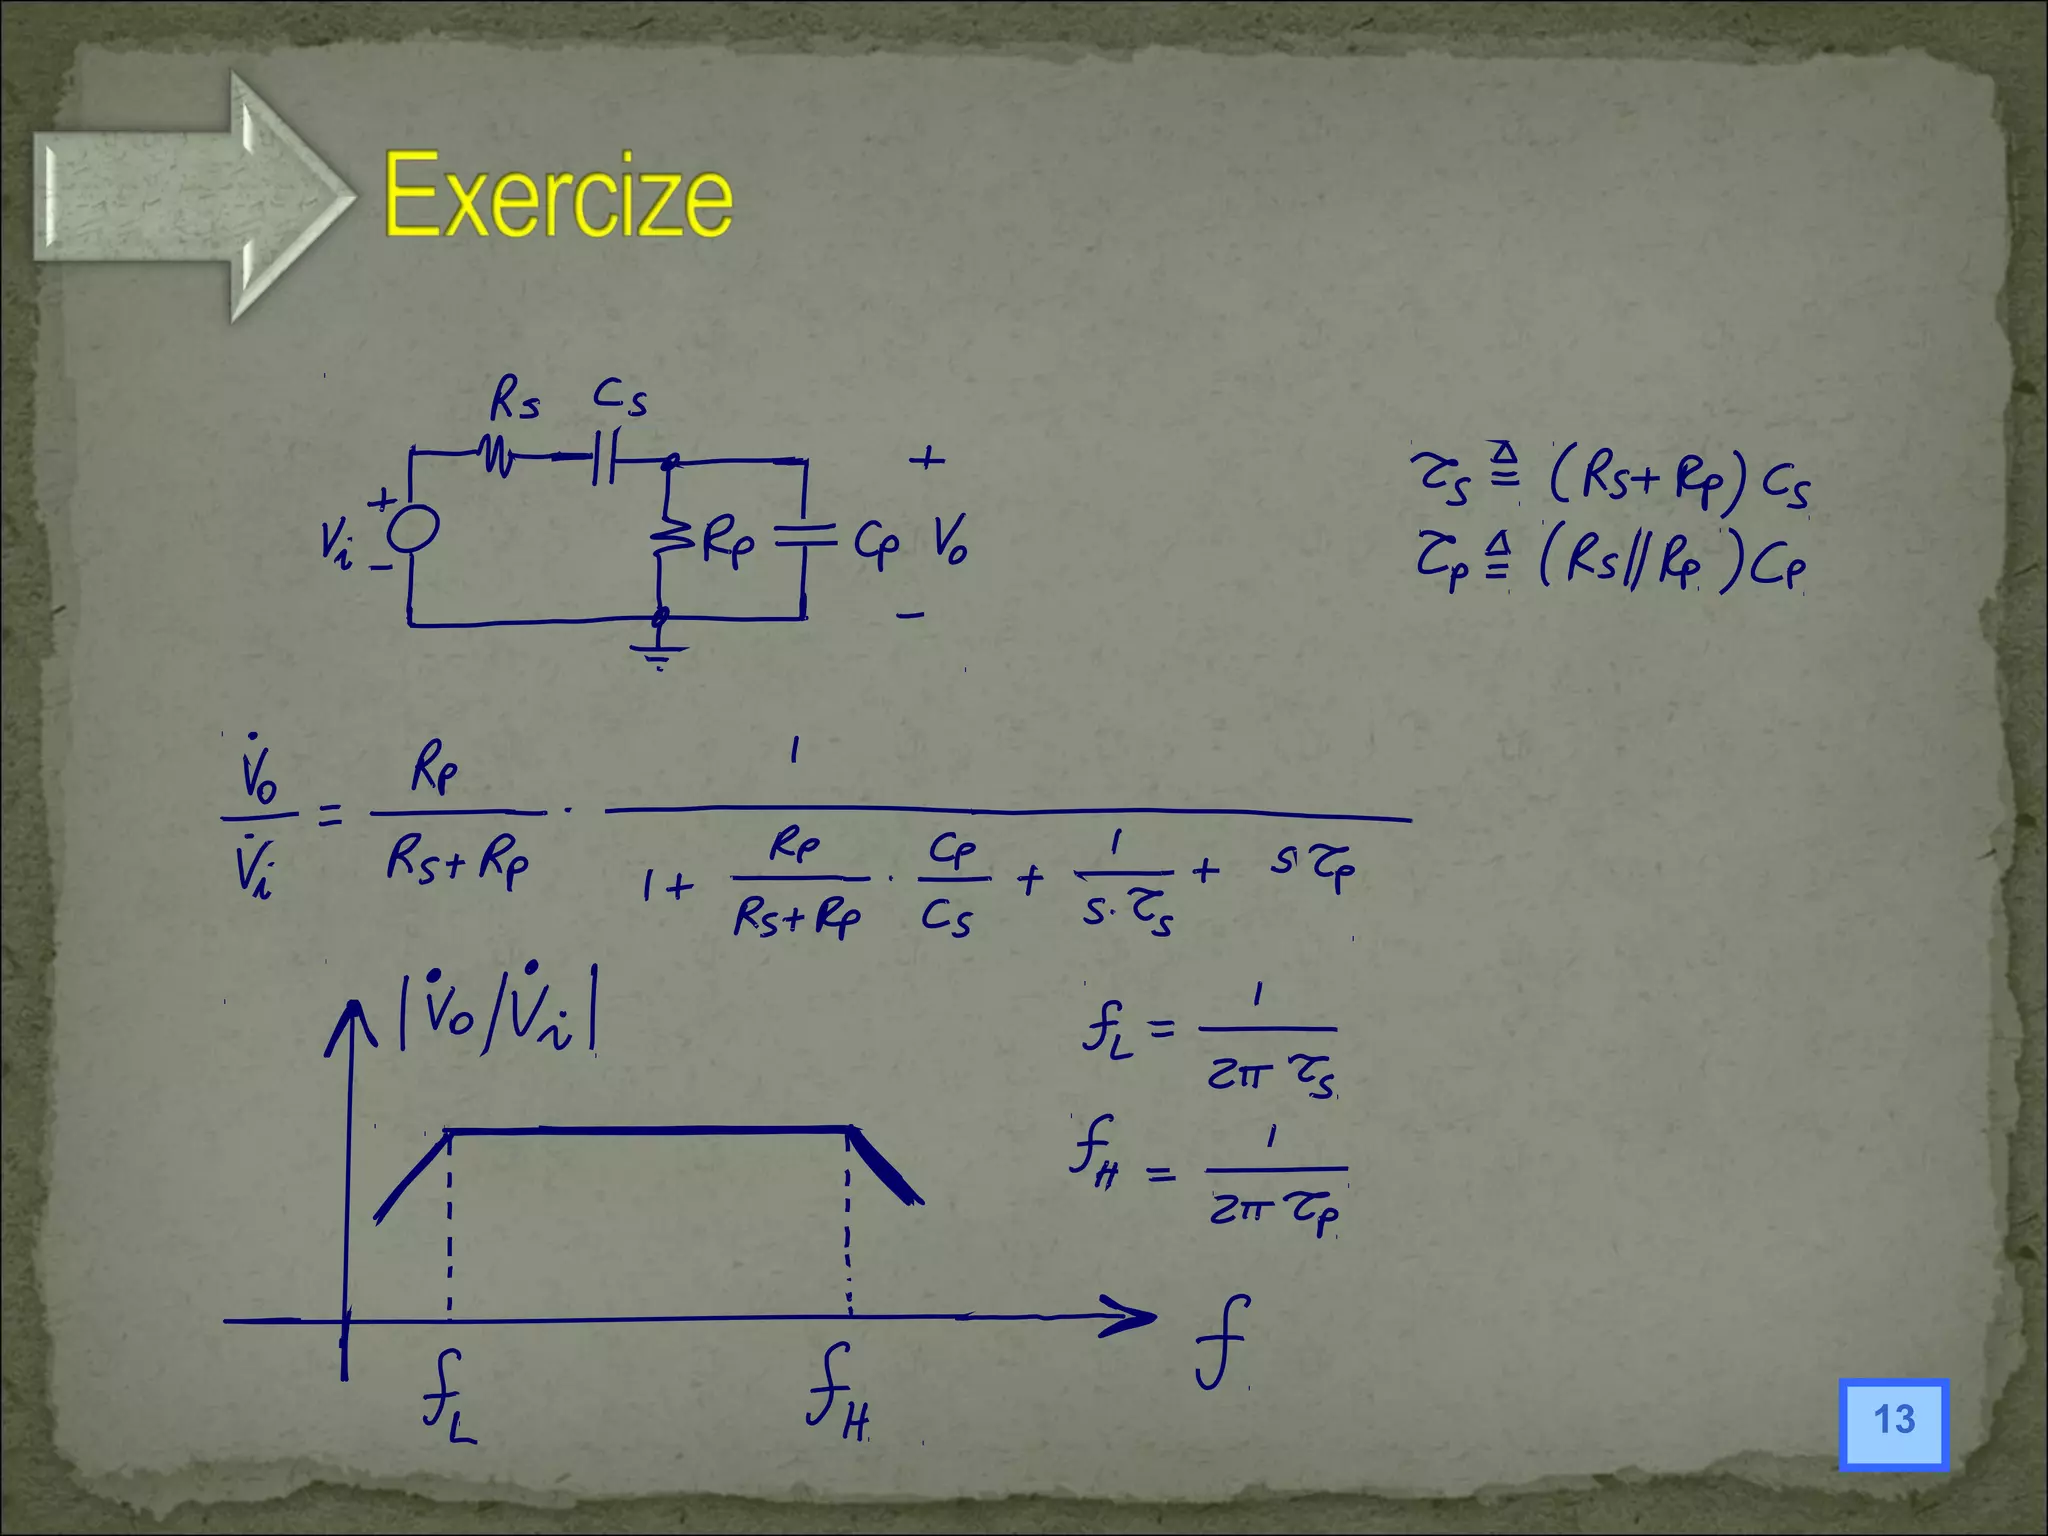 Exercize
Rs Cs
+ +
Vi Rp Cp Vo
- -
τs ≜ (Rs+Rp) Cs
τp ≜ (Rs//Rp) Cp
V̇o/V̇i = Rp/(Rs+Rp) · 1/(1 + Rp/(Rs+Rp) · Cp/Cs + 1/(s·τs) + sτp)
|V̇o/V̇i|
fL = 1/(2π τs)
fH = 1/(2π τp)
f
fL fH
13